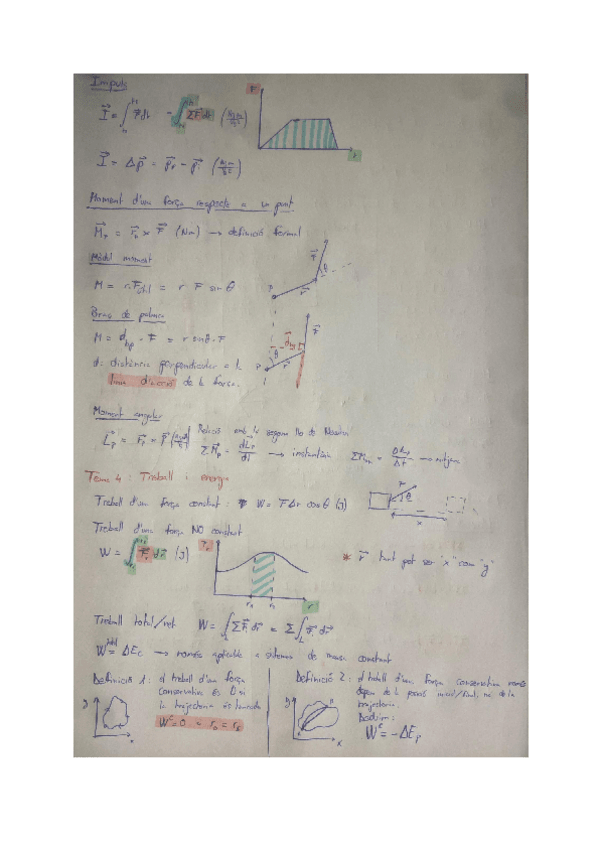 Impuls
I = ∫ F dt = ∫ ΣF dt
F
t
I = Δp = p_f − p_i
Moment d'una força respecte a un punt
M_p = r_p × F (Nm) → definició formal
Mòdul moment
M = r · F = r F sin θ
P r F θ
Braç de palanca
M = d · F = r sin θ · F
d: distància perpendicular a la
línia d'acció de la força.
P θ r F
Moment angular
L_p = r_p × p
Relació amb la segona llei de Newton
ΣM_p = dL_p/dt → instantània
ΣM = ΔL_p/Δt → mitjana
Tema 4: Treball i energia
Treball d'una força constant: W = F Δr cos θ (J)
F θ
x
Treball d'una força NO constant
W = ∫ F dr (J)
r
* r tant pot ser "x" com "y"
Treball total/net W = ∫ ΣF dr = Σ ∫ F dr
W = ΔEc → només aplicable a sistemes de massa constant
Definició 1: el treball d'una força
conservativa és 0 si
la trajectòria és tancada
W = 0
Definició 2: el treball d'una força conservativa només
depèn de la posició inicial/final, no de la
trajectòria
W^C = −ΔE_p